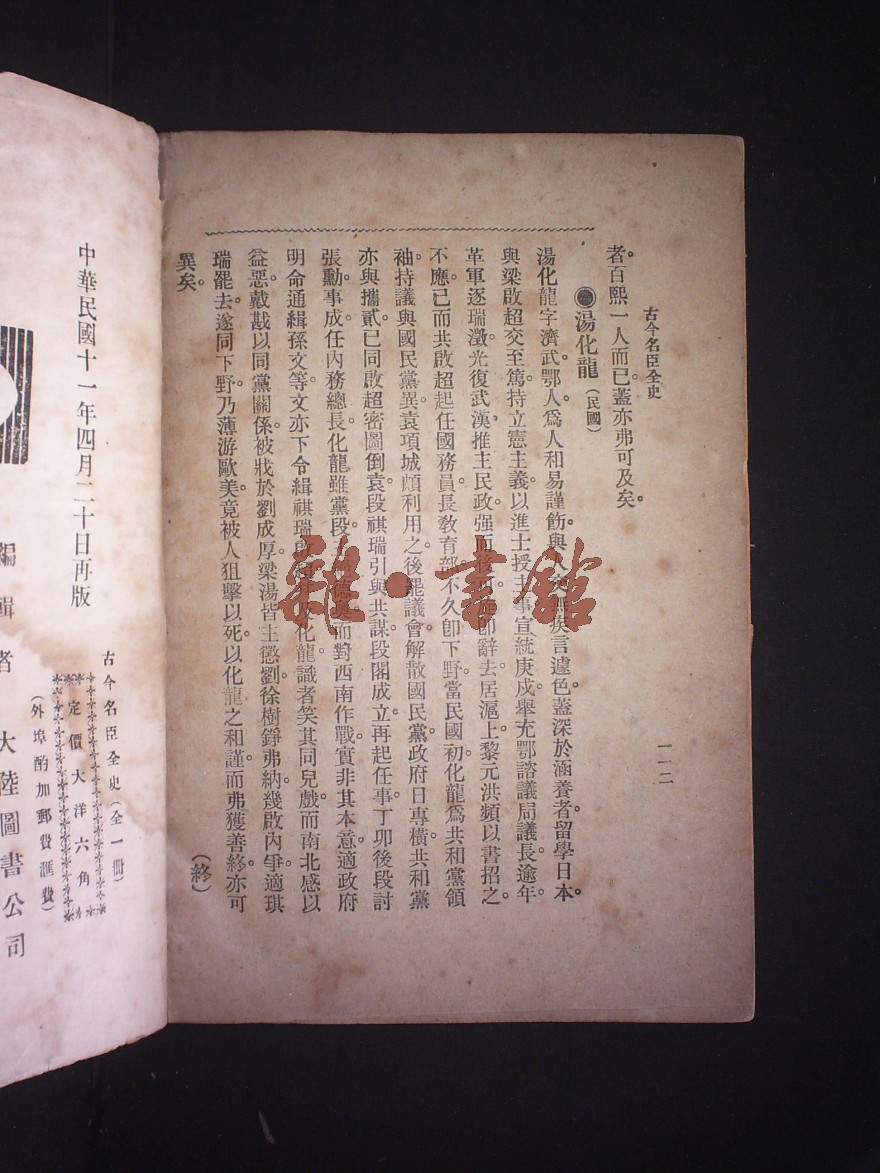 古今名臣全史
一一二
者。百熙一人而已。蓋亦弗可及矣。
湯化龍（民國）
湯化龍字濟武。鄂人。爲人和易謹飭。與人交無疾言遽色。蓋深於涵養者。留學日本。
與梁啟超交至篤。持立憲主義。以進士授主事。宣統庚戌。舉充鄂諮議局議長。逾年
革軍逐瑞澂。光復武漢。推主民政。强而後可。旋卽辭去。居滬上。黎元洪頻以書招之。
不應。已而共啟超起任國務員。長敎育部。不久卽下野。當民國初。化龍爲共和黨領
袖。持議與國民黨異。袁項城頗利用之。後罷議會。解散國民黨。政府日專橫。共和黨
亦與攜貳。已同啟超密圖倒袁。段祺瑞引與共謀。段閣成立。再起任事。丁卯後段討
張勳事成。任內務總長。化龍雖黨段 而對西南作戰。實非其本意。適政府
明命通緝孫文等。文亦下令緝祺瑞啟超 化龍。識者笑其同兒戲。而南北感以
益惡。戴戡以同黨關係。被戕於劉成厚。梁湯皆主懲劉。徐樹錚弗納。幾啟內爭。適琪
瑞罷去。遂同下野。乃薄游歐美。竟被人狙擊以死。以化龍之和謹。而弗獲善終。亦可
異矣。
（終）
古今名臣全史（全一冊）
定價大洋六角
（外埠酌加郵費匯費）
中華民國十一年四月二十日再版
編輯者 大陸圖書公司
雜·書館